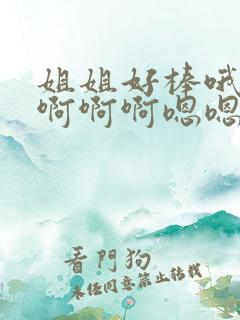 姐姐好棒哦
啊啊啊嗯嗯
看門狗
未經同意禁止轉載